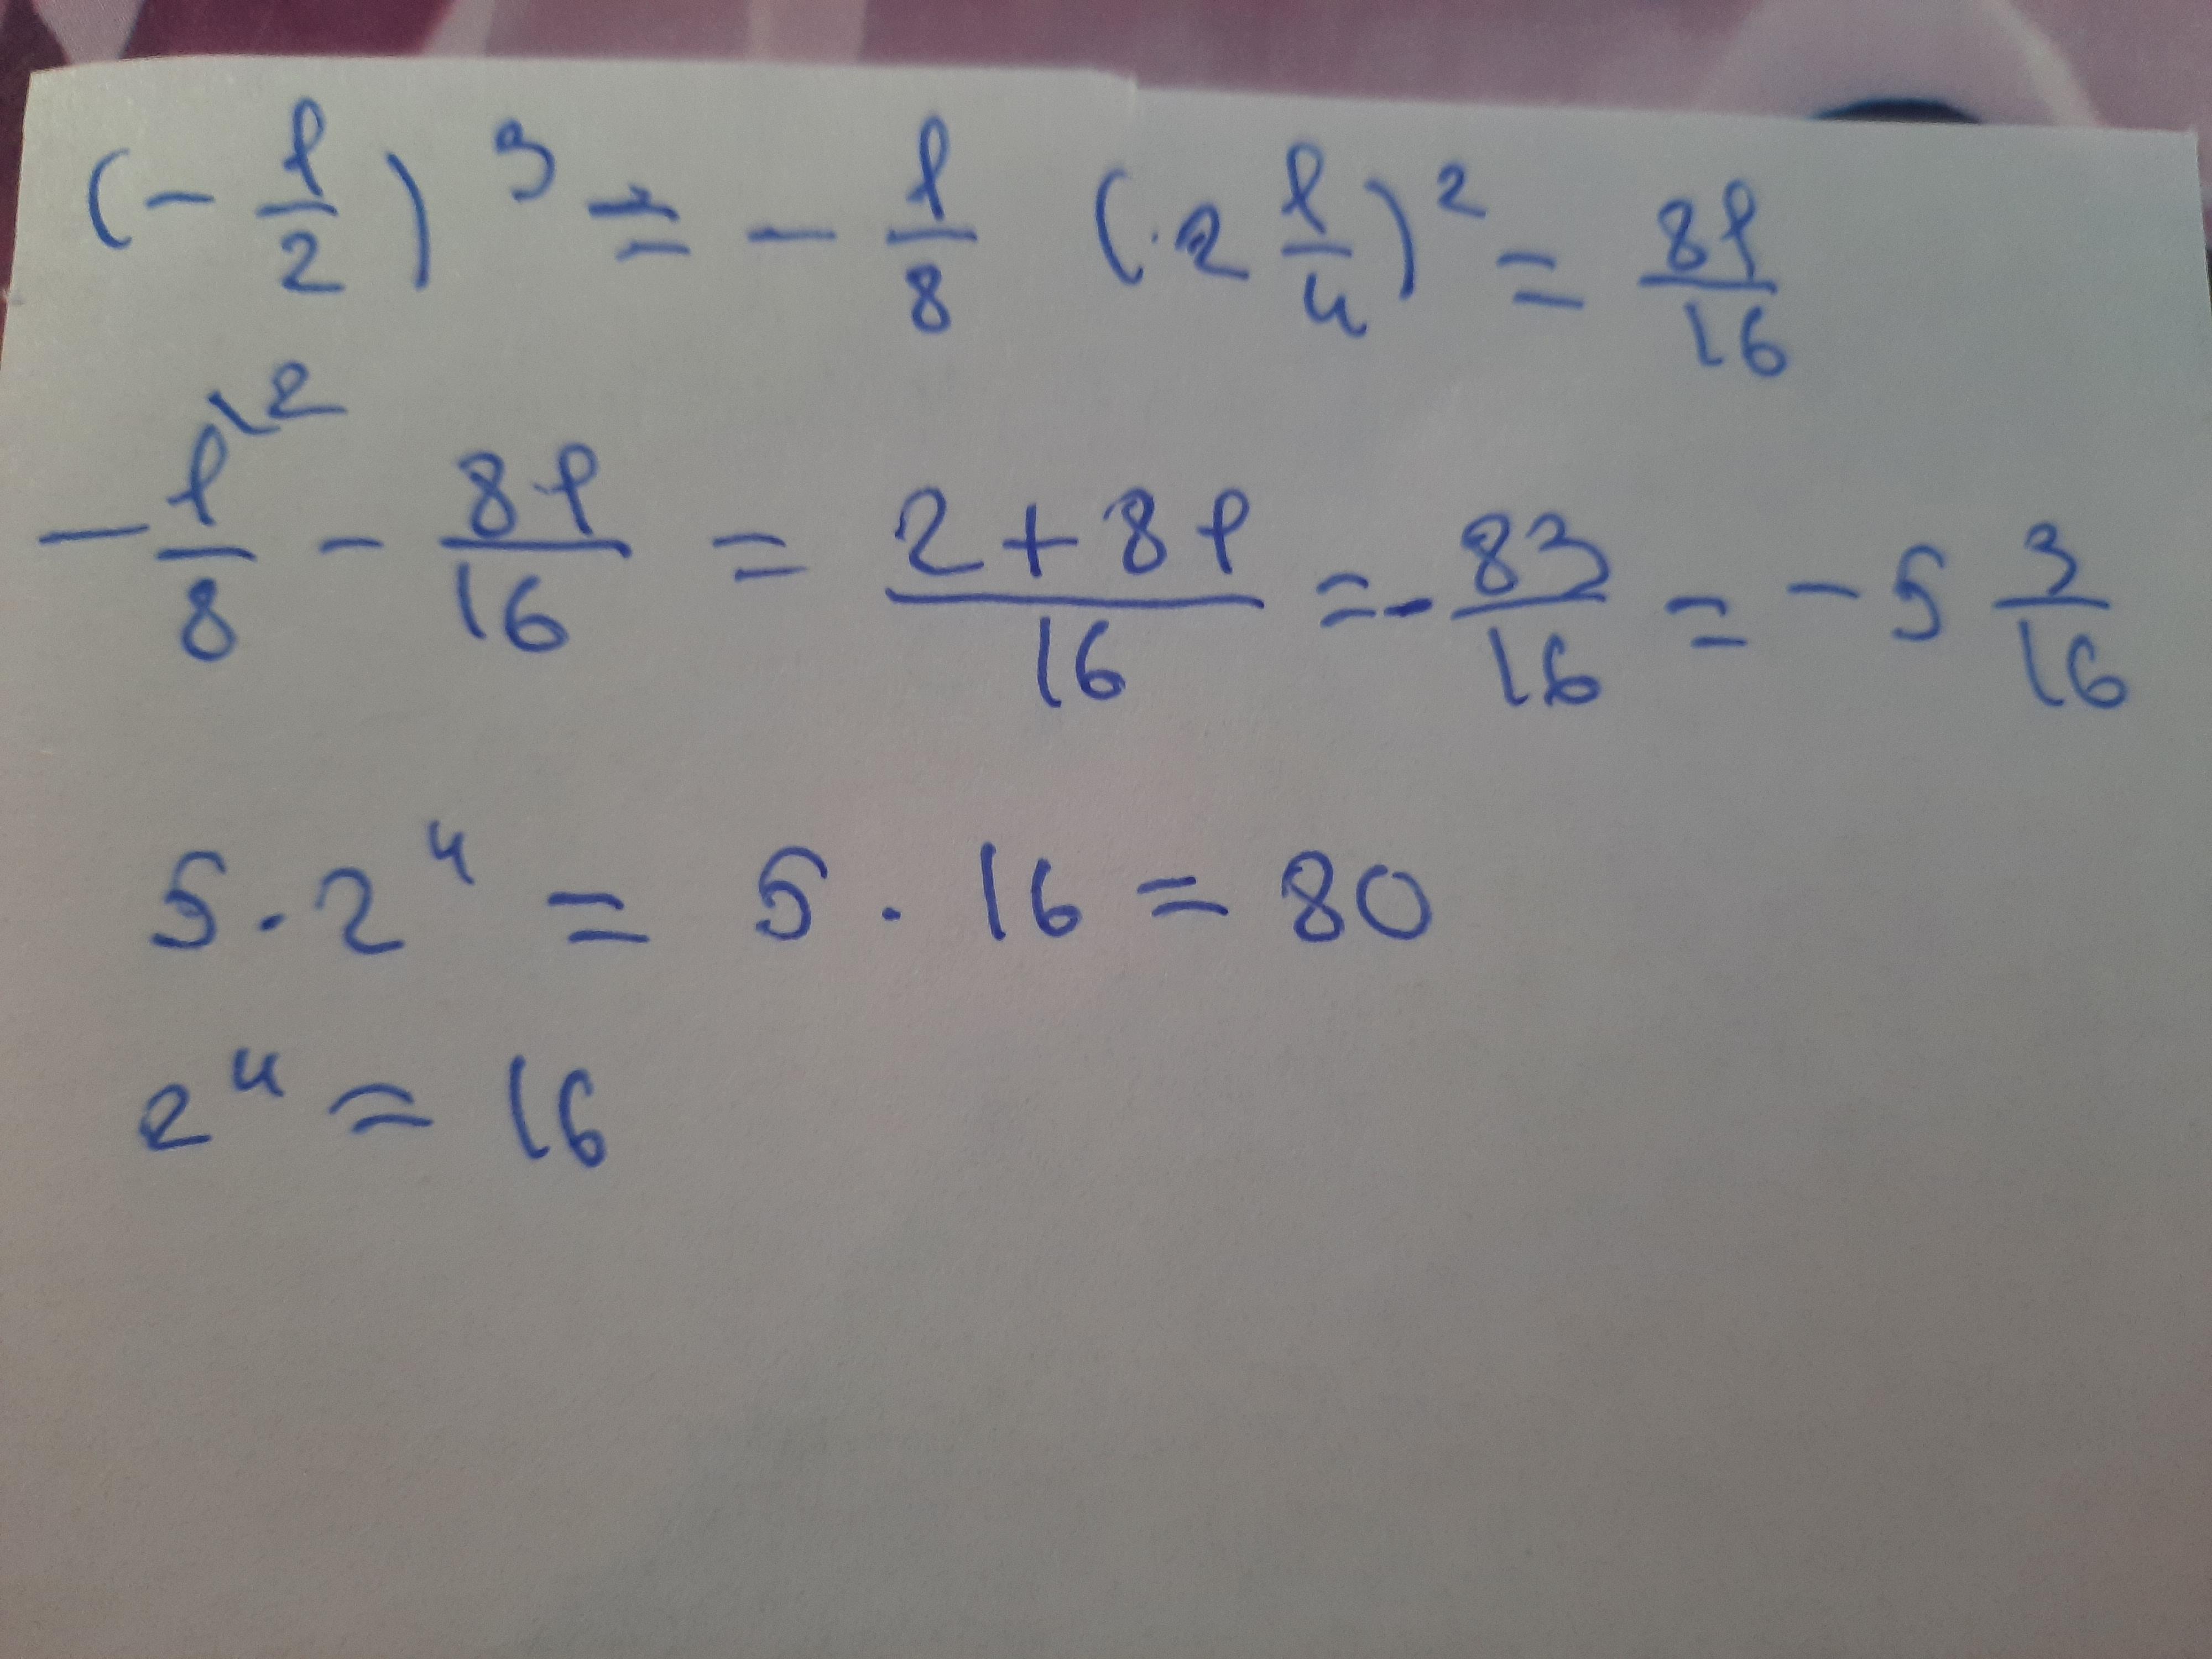 (- 1/2)^3 = - 1/8 (2 1/4)^2 = 81/16
- 1\2/8 - 81/16 = 2+81/16 = - 83/16 = - 5 3/16
5 · 2^4 = 5 · 16 = 80
2^4 = 16